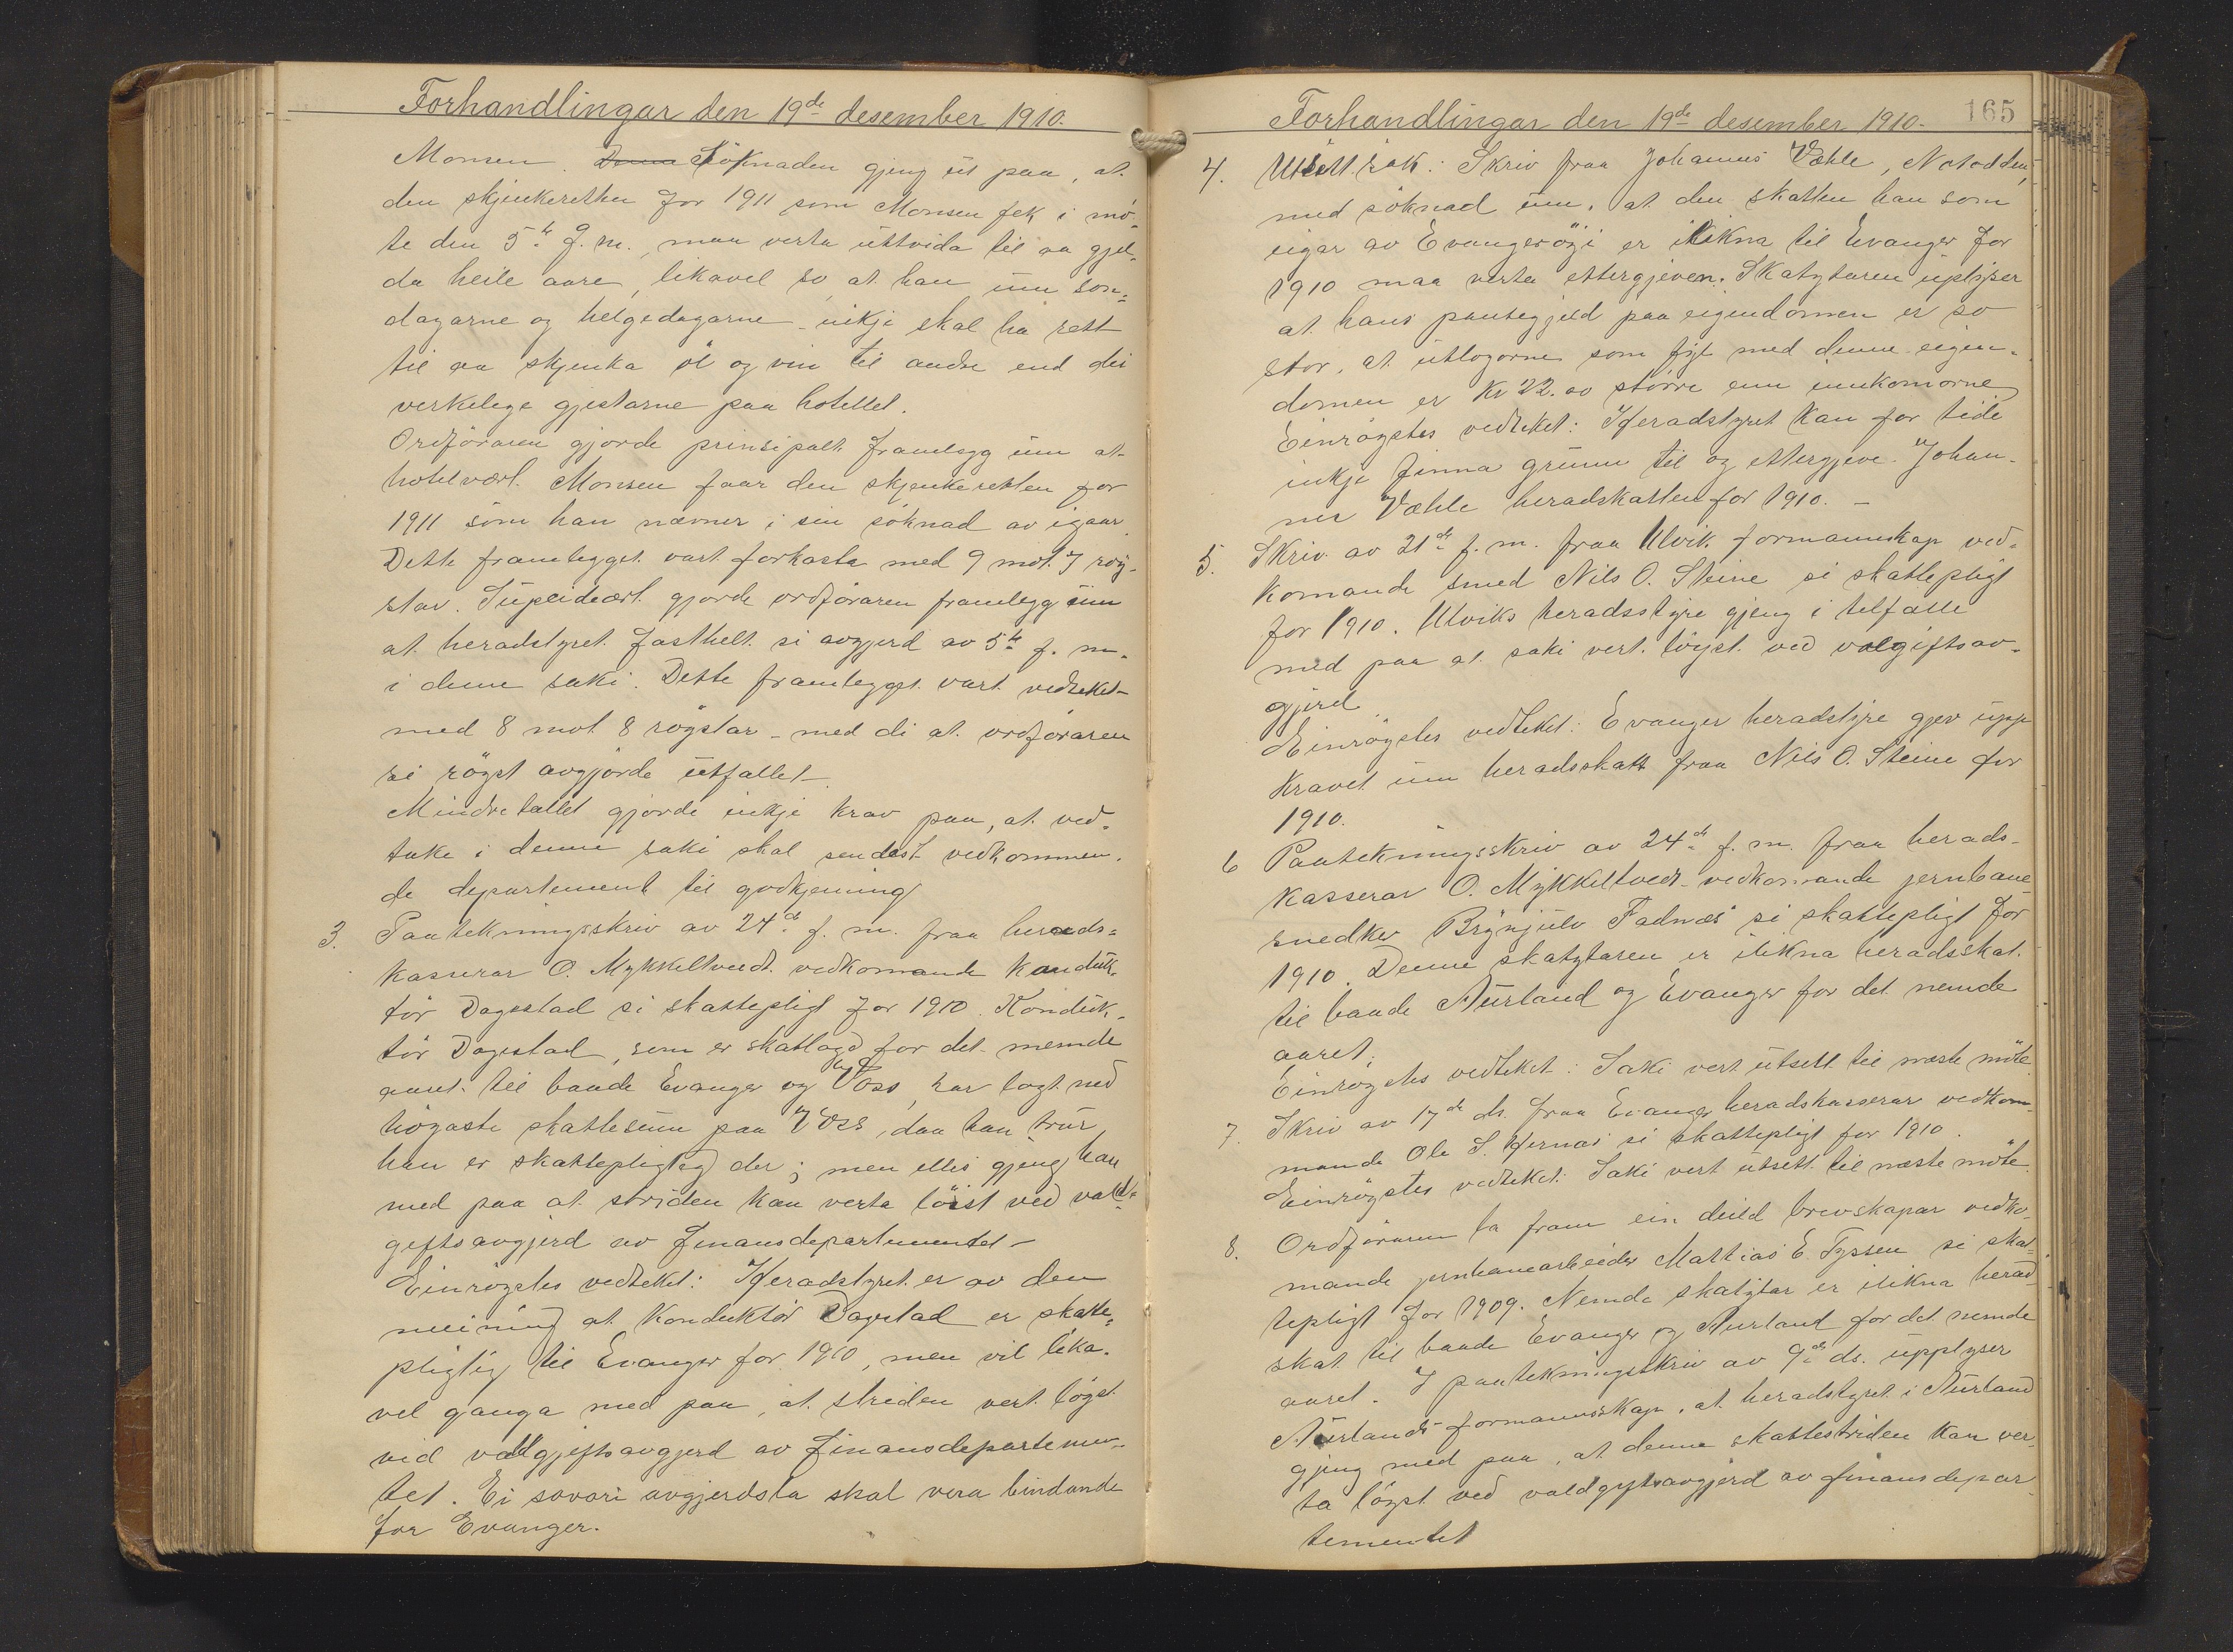 Forhandlingar den 19de desember 1910.
Monsen. Denne Söknaden gjeng ut paa, at
den skjenkeretten for 1911 som Monsen fek i mö-
te den 5te f. m., maa verta uttvida til aa gjel-
da heile aare, likavel so at han um son-
dagarne og helgedagarne inkje skal ha rett
til aa skjenka öl og vin til andre end dei
verkelege gjestarne paa hotellet.
Ordföraren gjorde prinsipalt framlegg um at
hotelvært Monsen faar den skjenkeretten for
1911 som han nævner i sin söknad av igaar.
Dette framlegget vart forkasta med 9 mot 7 röy-
star. Supsidært gjorde ordföraren framlegg um
at heradstyret fasthelt si avgjerd av 5te f. m.
i denne saki. Dette framlegget vart vedteket
med 8 mot 8 röystar - med di at ordföraren
si röyst avgjorde utfallet.
Mindretallet gjorde inkje krav paa, at ved-
take i denne saki skal sendast vedkommen-
de departement til godkjenning
3. Paatekningsskriv av 24de f. m. fraa herads-
kasserar O. Mykkeltvedt vedkomande konduk-
tör Dagestad si skattepligt for 1910. Konduk-
tör Dagestad, som er skattlagd for det nemde
aaret til baade Evanger og Voss, har lagt ned
högaste skattesum paa Voss, daa han trur
han er skattepligtig der; men elles gjeng han
med paa at striden kan verta löist ved vald-
geftsavgjerd av finansdepartementet -
Einröystes vedteket: Heradstyret er av den
meining at konduktör Dagestad er skatte-
pligtig til Evanger for 1910, men vil lika-
vel ganga med paa, at striden vert löyst
vid valdgjeftsavgjerd av finansdepartemen-
tet. Ei sovori avgjerdsla skal vera bindande
for Evanger.
Forhandlingar den 19de desember 1910. 165
4. Utsett sak: Skriv fraa Johannes Væhle, Notodden,
med söknad um, at den skatten han som
eigar av Evangeröyi er ilikna til Evanger for
1910 maa verta ettergjeven. Skatytaren uplyser
at hans pantegjeld paa eigendomen er so
stor, at utlogorne som fyl med denne eigen-
domen er Kr 22.00 större enn innkomorne
Einröystes vedteket: Heradstyret kan for tidi
inkje finna grunn til og ettergjeve Johan-
nes Væhle heradskatten for 1910. -
5. Skriv av 21de f. m. fraa Ulvik formannskap ved-
komande smed Nils O. Steine si skattepligt
for 1910. Ulviks heradsstyre gjeng i telfalle
med paa at saki vert löyst ved valgiftsav-
gjerd.
Einröystes vedteket: Evanger heradstyre gjev upp
kravet um heradsskatt fraa Nils O. Steine for
1910.
6 Paatekningsskriv av 24de f. m. fraa herads-
kasserar O. Mykkeltvedt vedkomande jernbane
snedker Brynjulv Fadnæs si skattepligt for
1910. Denne skatytaren er ilikna heradsskat
til baade Aurland og Evanger for det nemde
aaret.
Einröystes vedteket: Saki vert utsett til næste möte
7. Skriv av 17de ds. fraa Evanger heradskasserar vedkom-
mande Ole S. Hernæs si skattepligt for 1910.
Einröystes vedteket: Saki vert utsett til næste möte.
8. Ordföraren la fram ein deild brevskapar vedko-
mande jernbanearbeider Mattias E. Tyssen si skat-
tepligt for 1909. Nemde skatytar er ilikna herad-
skat til baade Evanger og Aurland for det nemde
aaret. I paatekningsskriv av 9de ds. upplyser
Aurlands formannsskap, at heradstyret i Aurland
gjeng med paa, at denne skattestriden kan ver-
ta löyst ved valdgiftsavgjerd av finansdepar-
tementet